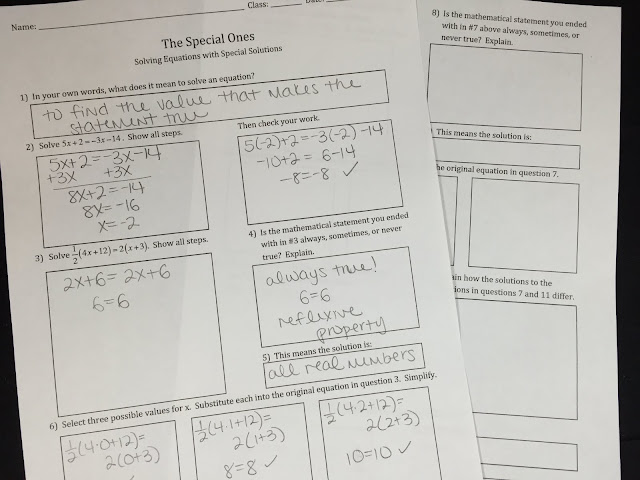 Name:
Class:
Date:
The Special Ones
Solving Equations with Special Solutions
1) In your own words, what does it mean to solve an equation?
to find the value that makes the
statement true
2) Solve 5x+2=−3x−14. Show all steps.
5x+2=-3x-14
+3x +3x
8x+2=-14
8x=-16
x=-2
Then check your work.
5(-2)+2=-3(-2)-14
-10+2= 6-14
-8=-8 ✓
3) Solve 1/2(4x+12)=2(x+3). Show all steps.
2x+6= 2x+6
6=6
4) Is the mathematical statement you ended
with in #3 always, sometimes, or never
true? Explain.
always true!
6=6
reflexive
property
5) This means the solution is:
all real numbers
6) Select three possible values for x. Substitute each into the original equation in question 3. Simplify.
1/2(4·0+12)=
2(0+3)
1/2(4·1+12)=
2(1+3)
8=8 ✓
1/2(4·2+12)=
2(2+3)
10=10 ✓
8) Is the mathematical statement you ended
with in #7 above always, sometimes, or
never true? Explain.
This means the solution is:
he original equation in question 7.
in how the solutions to the
ions in questions 7 and 11 differ.